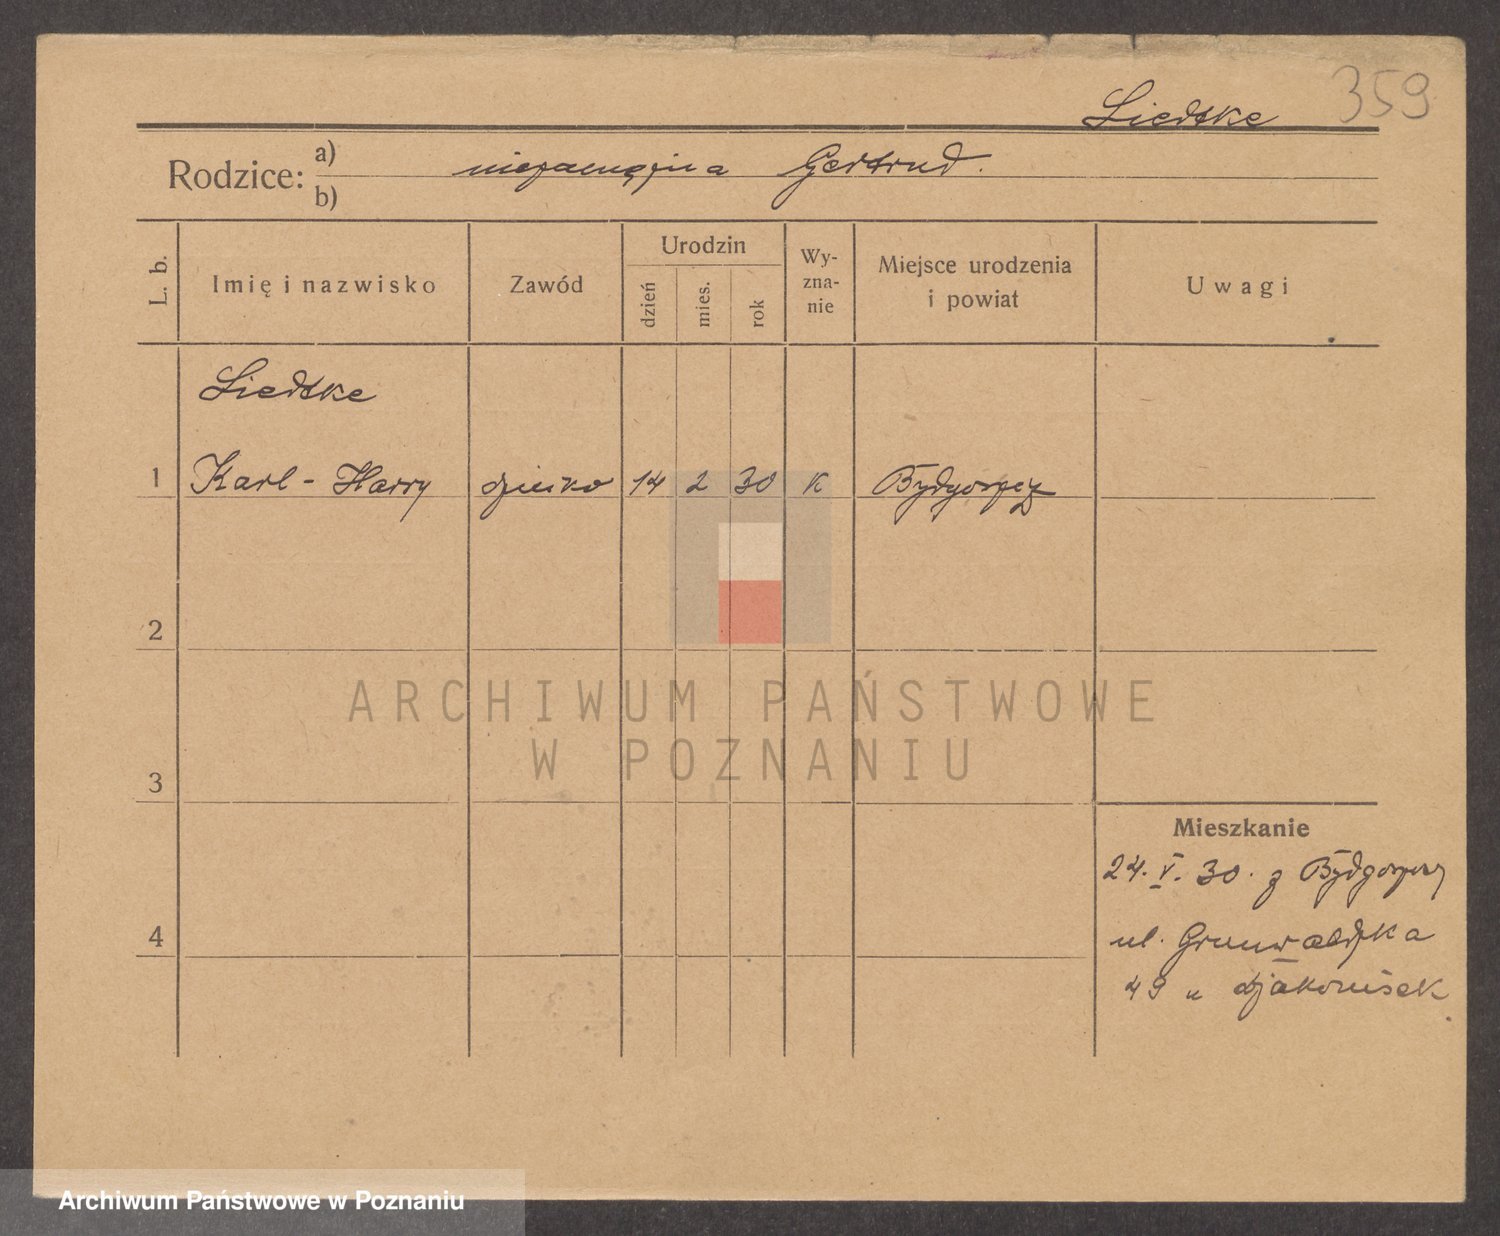 359
Liedtke
Rodzice: a) niezamężna Gertrud.
b)
L. b.
Imię i nazwisko
Zawód
Urodzin
dzień
mies.
rok
Wy-
zna-
nie
Miejsce urodzenia
i powiat
Uwagi
Liedtke
1 Karl - Harry dziecko 14 2 30 K Bydgoszcz
2
ARCHIWUM PAŃSTWOWE
W POZNANIU
3
Mieszkanie
24. V. 30. z Bydgoszczy
4
ul. Grunwaldzka
49 u djakonisek
Archiwum Państwowe w Poznaniu